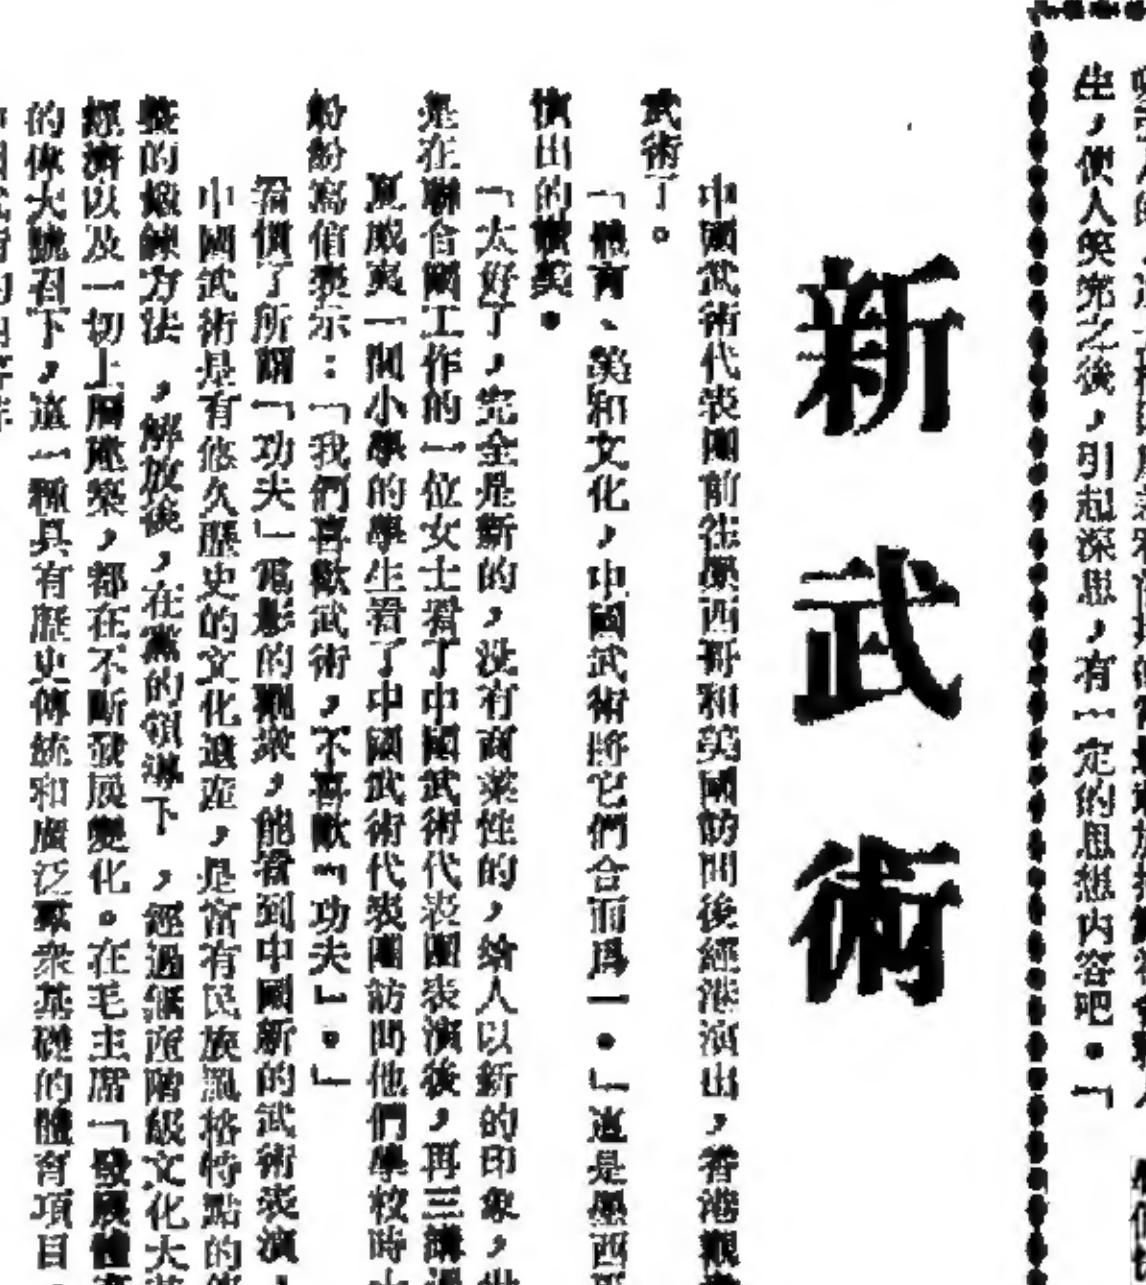 生，使人笑完之後，引起深思，有一定的思想内容吧。「
新武術
中國武術代表團前往墨西哥和美國訪問後經港演出，香港觀
武術了。
「體育、美和文化，中國武術將它們合而爲一。」這是墨西哥
演出的讚美。
「太好了，完全是新的，没有商業性的，給人以新的印象，
是在聯合國工作的一位女士看了中國武術代表團表演後，再三講
夏威夷一間小學的學生看了中國武術代表團訪問他們學校時
紛紛寫信表示：「我們喜歡武術，不喜歡「功夫」。」
看慣了所謂「功夫」電影的觀衆，能看到中國新的武術表演，
中國武術是有悠久歷史的文化遺産，是富有民族風格特點的
整的鍛鍊方法，解放後，在黨的領導下，經過無産階級文化大
經濟以及一切上層建築，都在不斷發展變化。在毛主席「發展體育
的偉大號召下，這一種具有歷史傳統和廣泛羣衆基礎的體育項目，